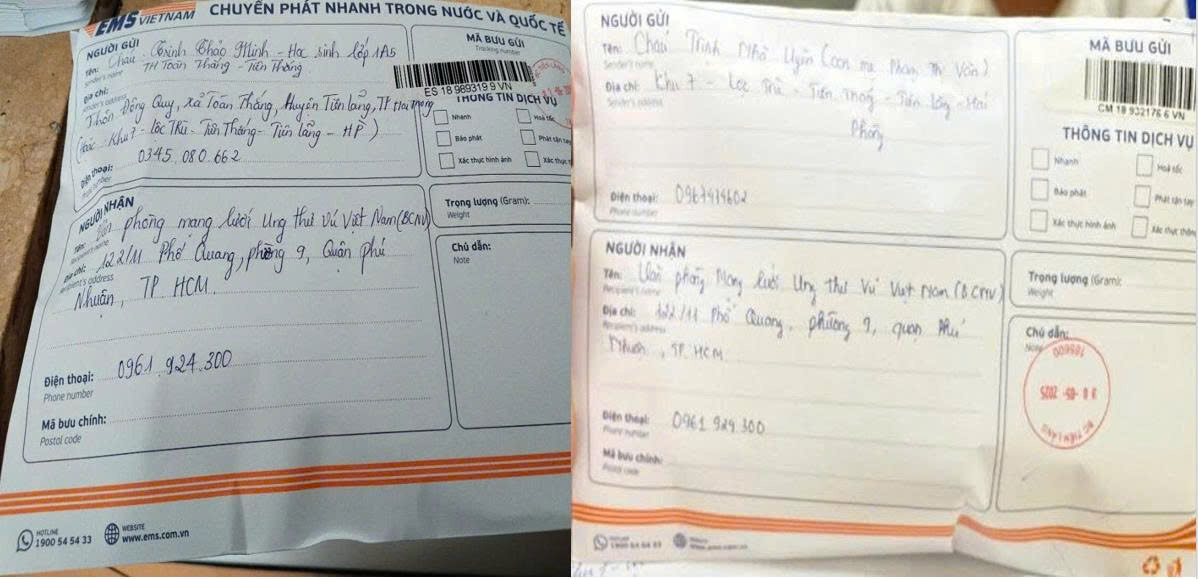 EMS VIETNAM CHUYỂN PHÁT NHANH TRONG NƯỚC VÀ QUỐC TẾ
NGƯỜI GỬI
Tên: Cháu Trịnh Thảo Minh - Học sinh lớp 1A5
Sender's name
TH Toàn Thắng - Tiên Thắng
Địa chỉ:
Sender's address
Thôn Đông Quy, xã Toàn Thắng, Huyện Tiên Lãng, TP Hải Phòng
(hoặc Khu 7 - Lộc Trù - Tiên Thắng - Tiên Lãng - HP)
Điện thoại: 0345 080 662
Phone number
MÃ BƯU GỬI
Tracking number
ES 18 989319 9 VN
THÔNG TIN DỊCH VỤ
Nhanh
Hoả tốc
Báo phát
Phát tận tay
Xác thực hình ảnh
Xác thực
NGƯỜI NHẬN
Tên: Văn phòng mạng lưới Ung thư vú Việt Nam (BCNV)
Recipient's name
Địa chỉ: 122/11 Phổ Quang, phường 9, Quận phú
Recipient's address
Nhuận, TP HCM
Điện thoại: 0961.924.300
Phone number
Mã bưu chính:
Postal code
Trọng lượng (Gram):
Weight
Chú dẫn:
Note
HOTLINE
1900 54 54 33
WEBSITE
www.ems.com.vn
NGƯỜI GỬI
Tên: Cháu Trịnh Nhã Uyên (con mẹ Phạm Thị Vân)
Sender's name
Địa chỉ: Khu 7 - Lộc Trù - Tiên Thắng - Tiên Lãng - Hải
Sender's address
Phòng
Điện thoại: 0967414602
Phone number
MÃ BƯU GỬI
CM 18 932176 6 VN
THÔNG TIN DỊCH VỤ
Nhanh
Hoả tốc
Báo phát
Phát tận tay
Xác thực hình ảnh
Xác thực thông
NGƯỜI NHẬN
Tên: Văn phòng Mạng lưới Ung thư Vú Việt Nam (BCNV)
Recipient's name
Địa chỉ: 122/11 Phổ Quang, phường 9, quận Phú
Recipient's address
Nhuận, TP. HCM
Điện thoại: 0961 924 300
Phone number
Mã bưu chính:
Postal code
Trọng lượng (Gram):
Weight
Chú dẫn:
Note
BC TIÊN LÃNG